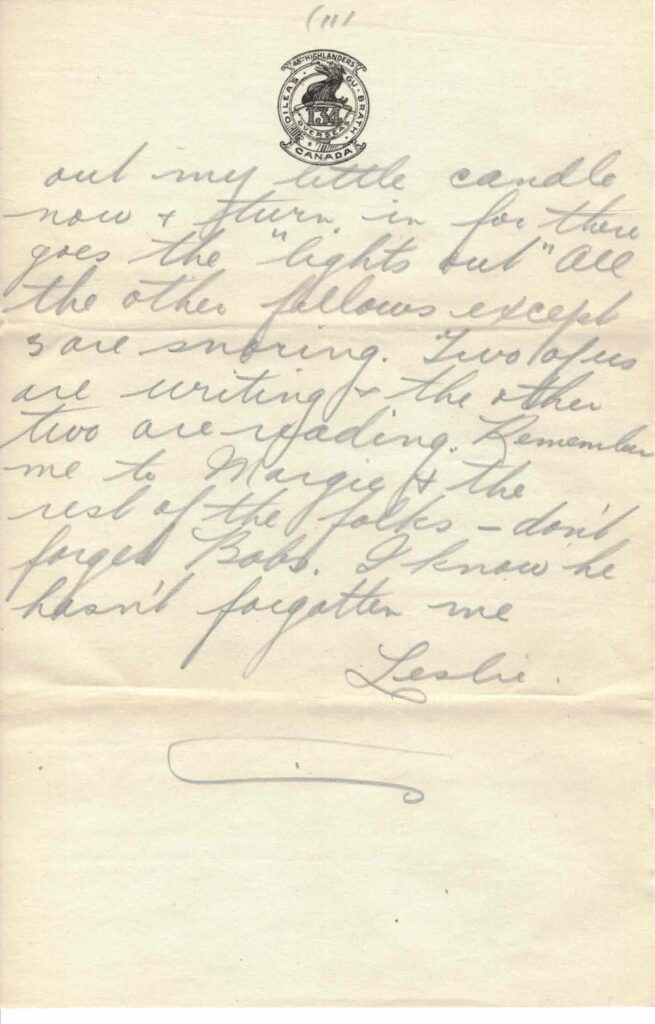 (11)
48TH HIGHLANDERS
DILEAS GU BRATH
134
OVERSEAS
CANADA
out my little candle
now & turn in for there
goes the "lights out" All
the other fellows except
3 are snoring. Two of us
are writing & the other
two are reading. Remember
me to Margie & the
rest of the folks – don't
forget Bobs. I know he
hasn't forgotten me
Leslie.